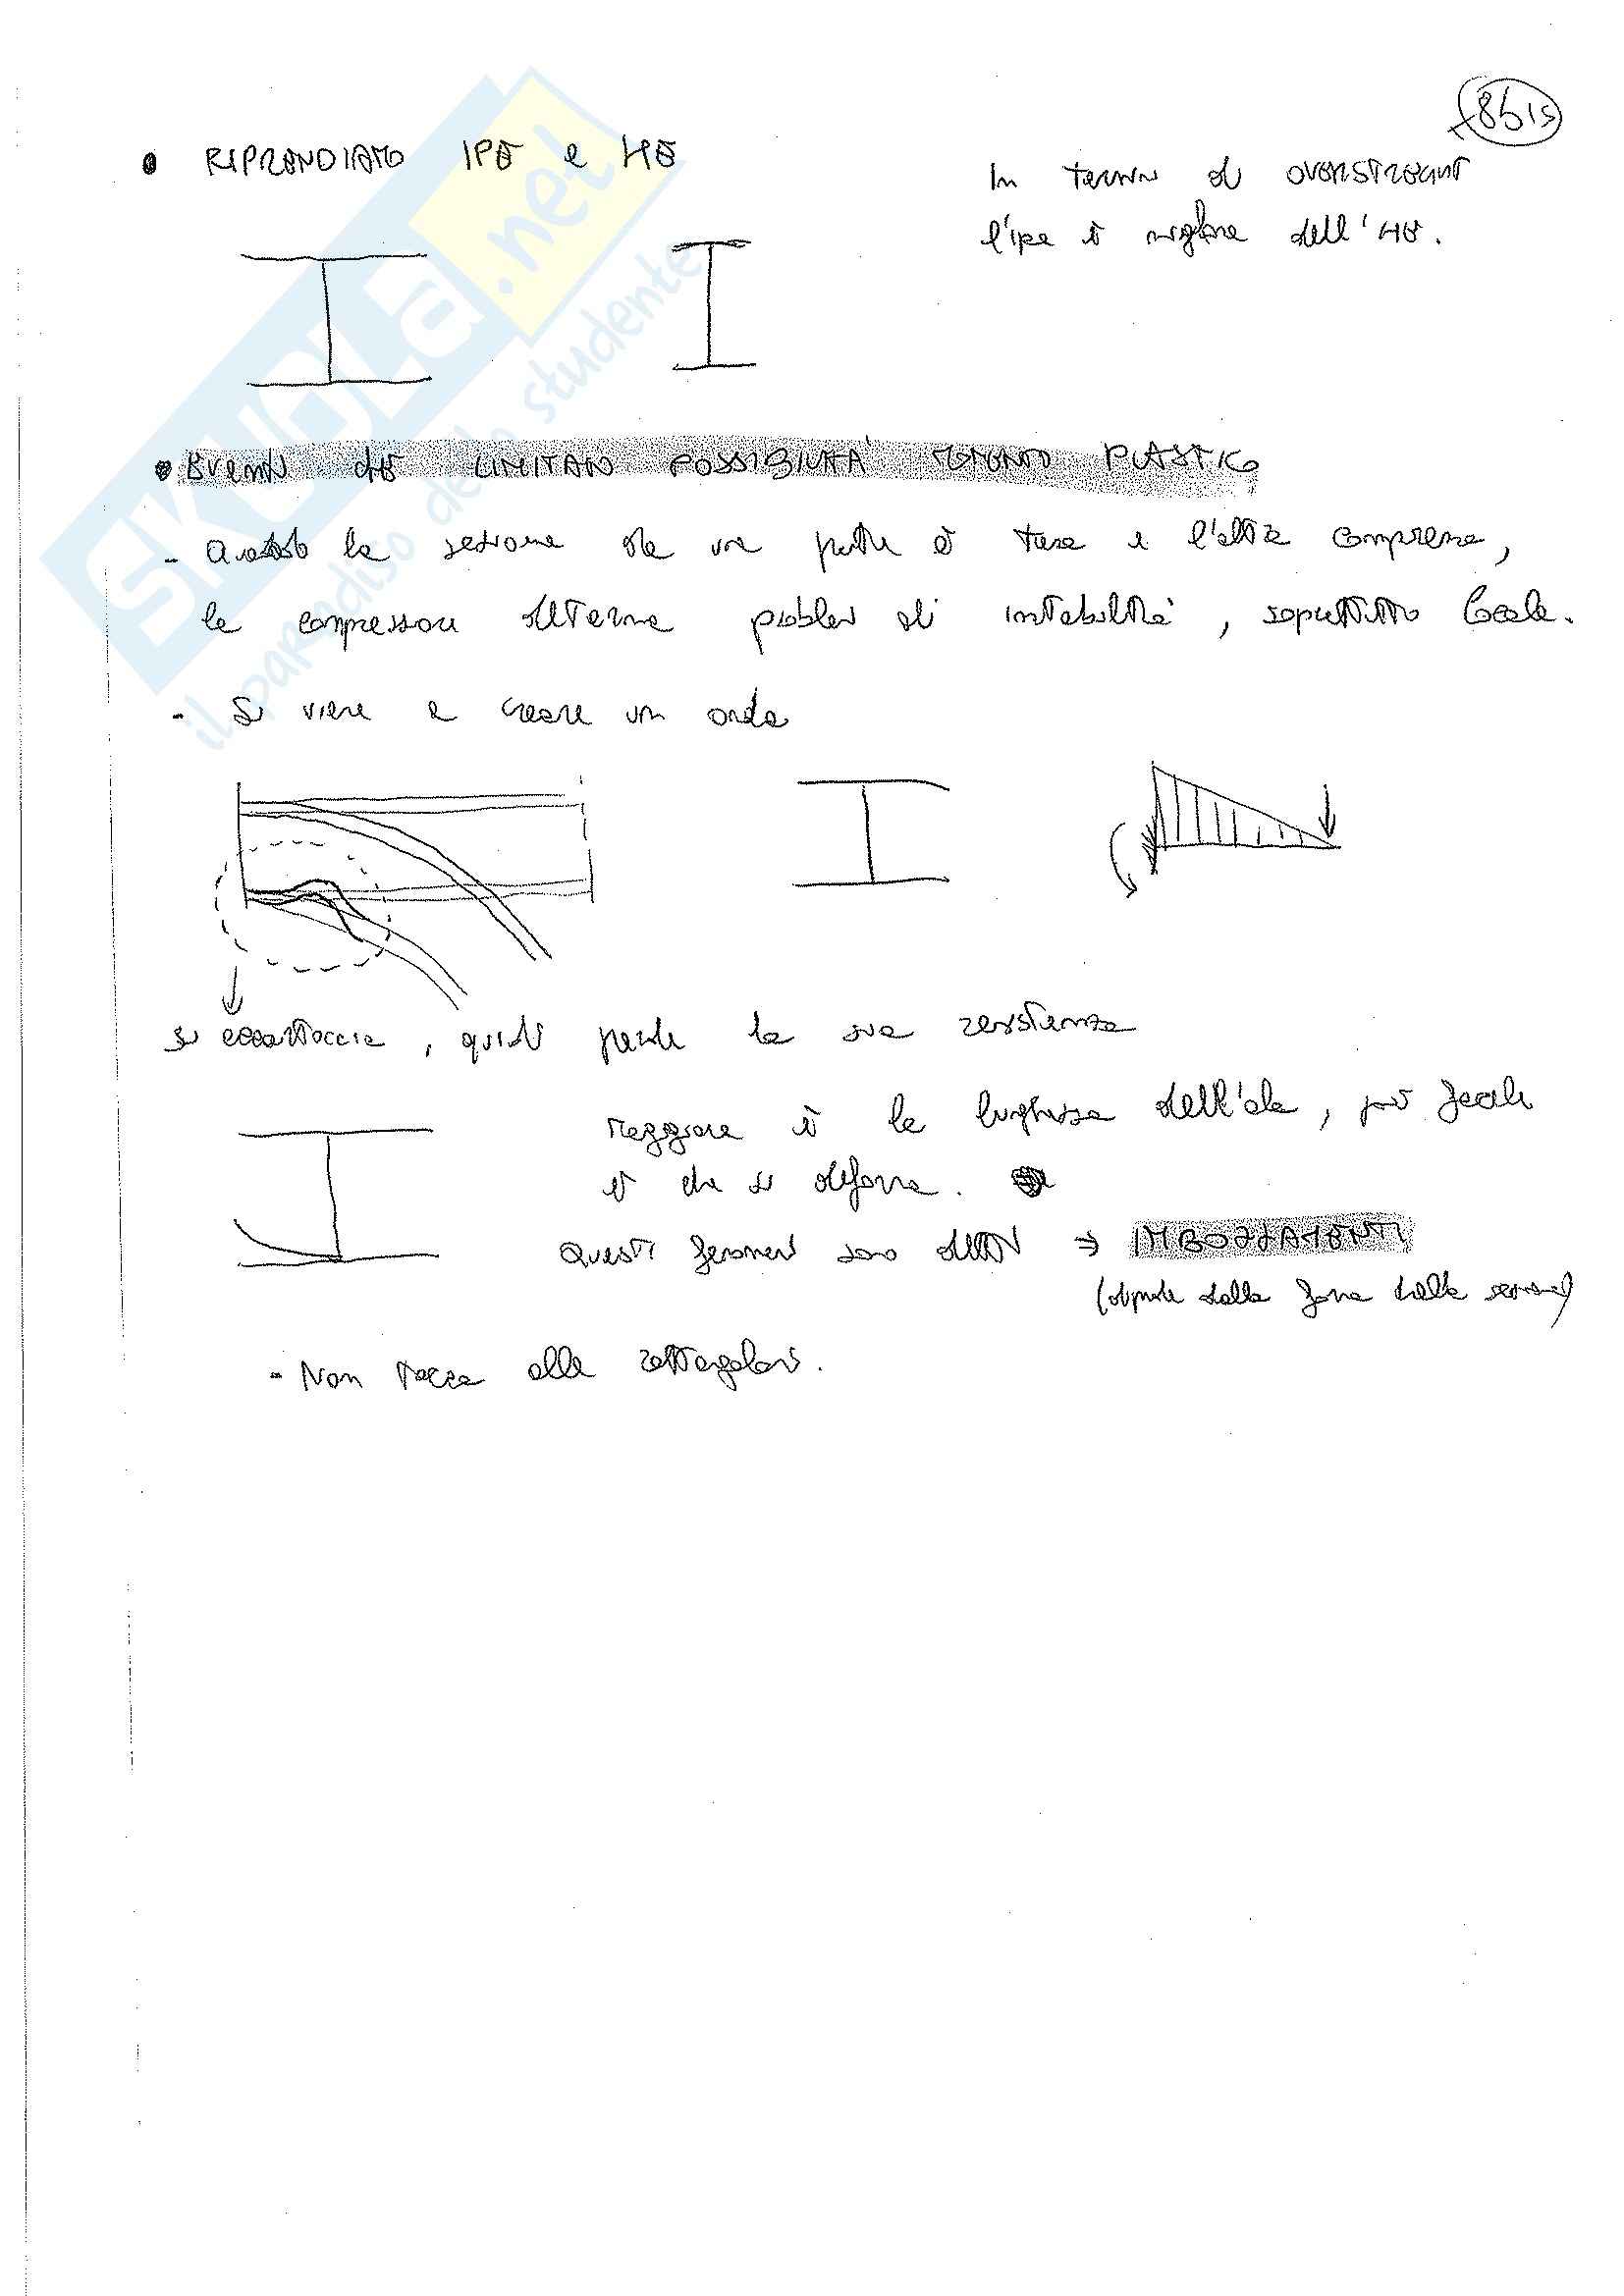 8bis
• RIPRENDIAMO IPE e HE
In termini di OVERSTRENGHT
l'ipe è migliore dell'HE.
SKUOLA.net
il paradiso dello studente
• Eventi che LIMITANO POSSIBILITÀ MOMENTO PLASTICO
- la sezione da una parte è tesa e l'altra compressa,
la compressione determina problemi di instabilità, soprattutto locale.
- Si viene a creare un onda
si accartoccia, quindi perde la sua resistenza
Maggiore è la lunghezza dell'ala, più facile
è che si deforma.
Questi fenomeni sono detti → IMBOZZAMENTI
(dipende dalla forma della sezione)
- Non tocca alle rettangolari.